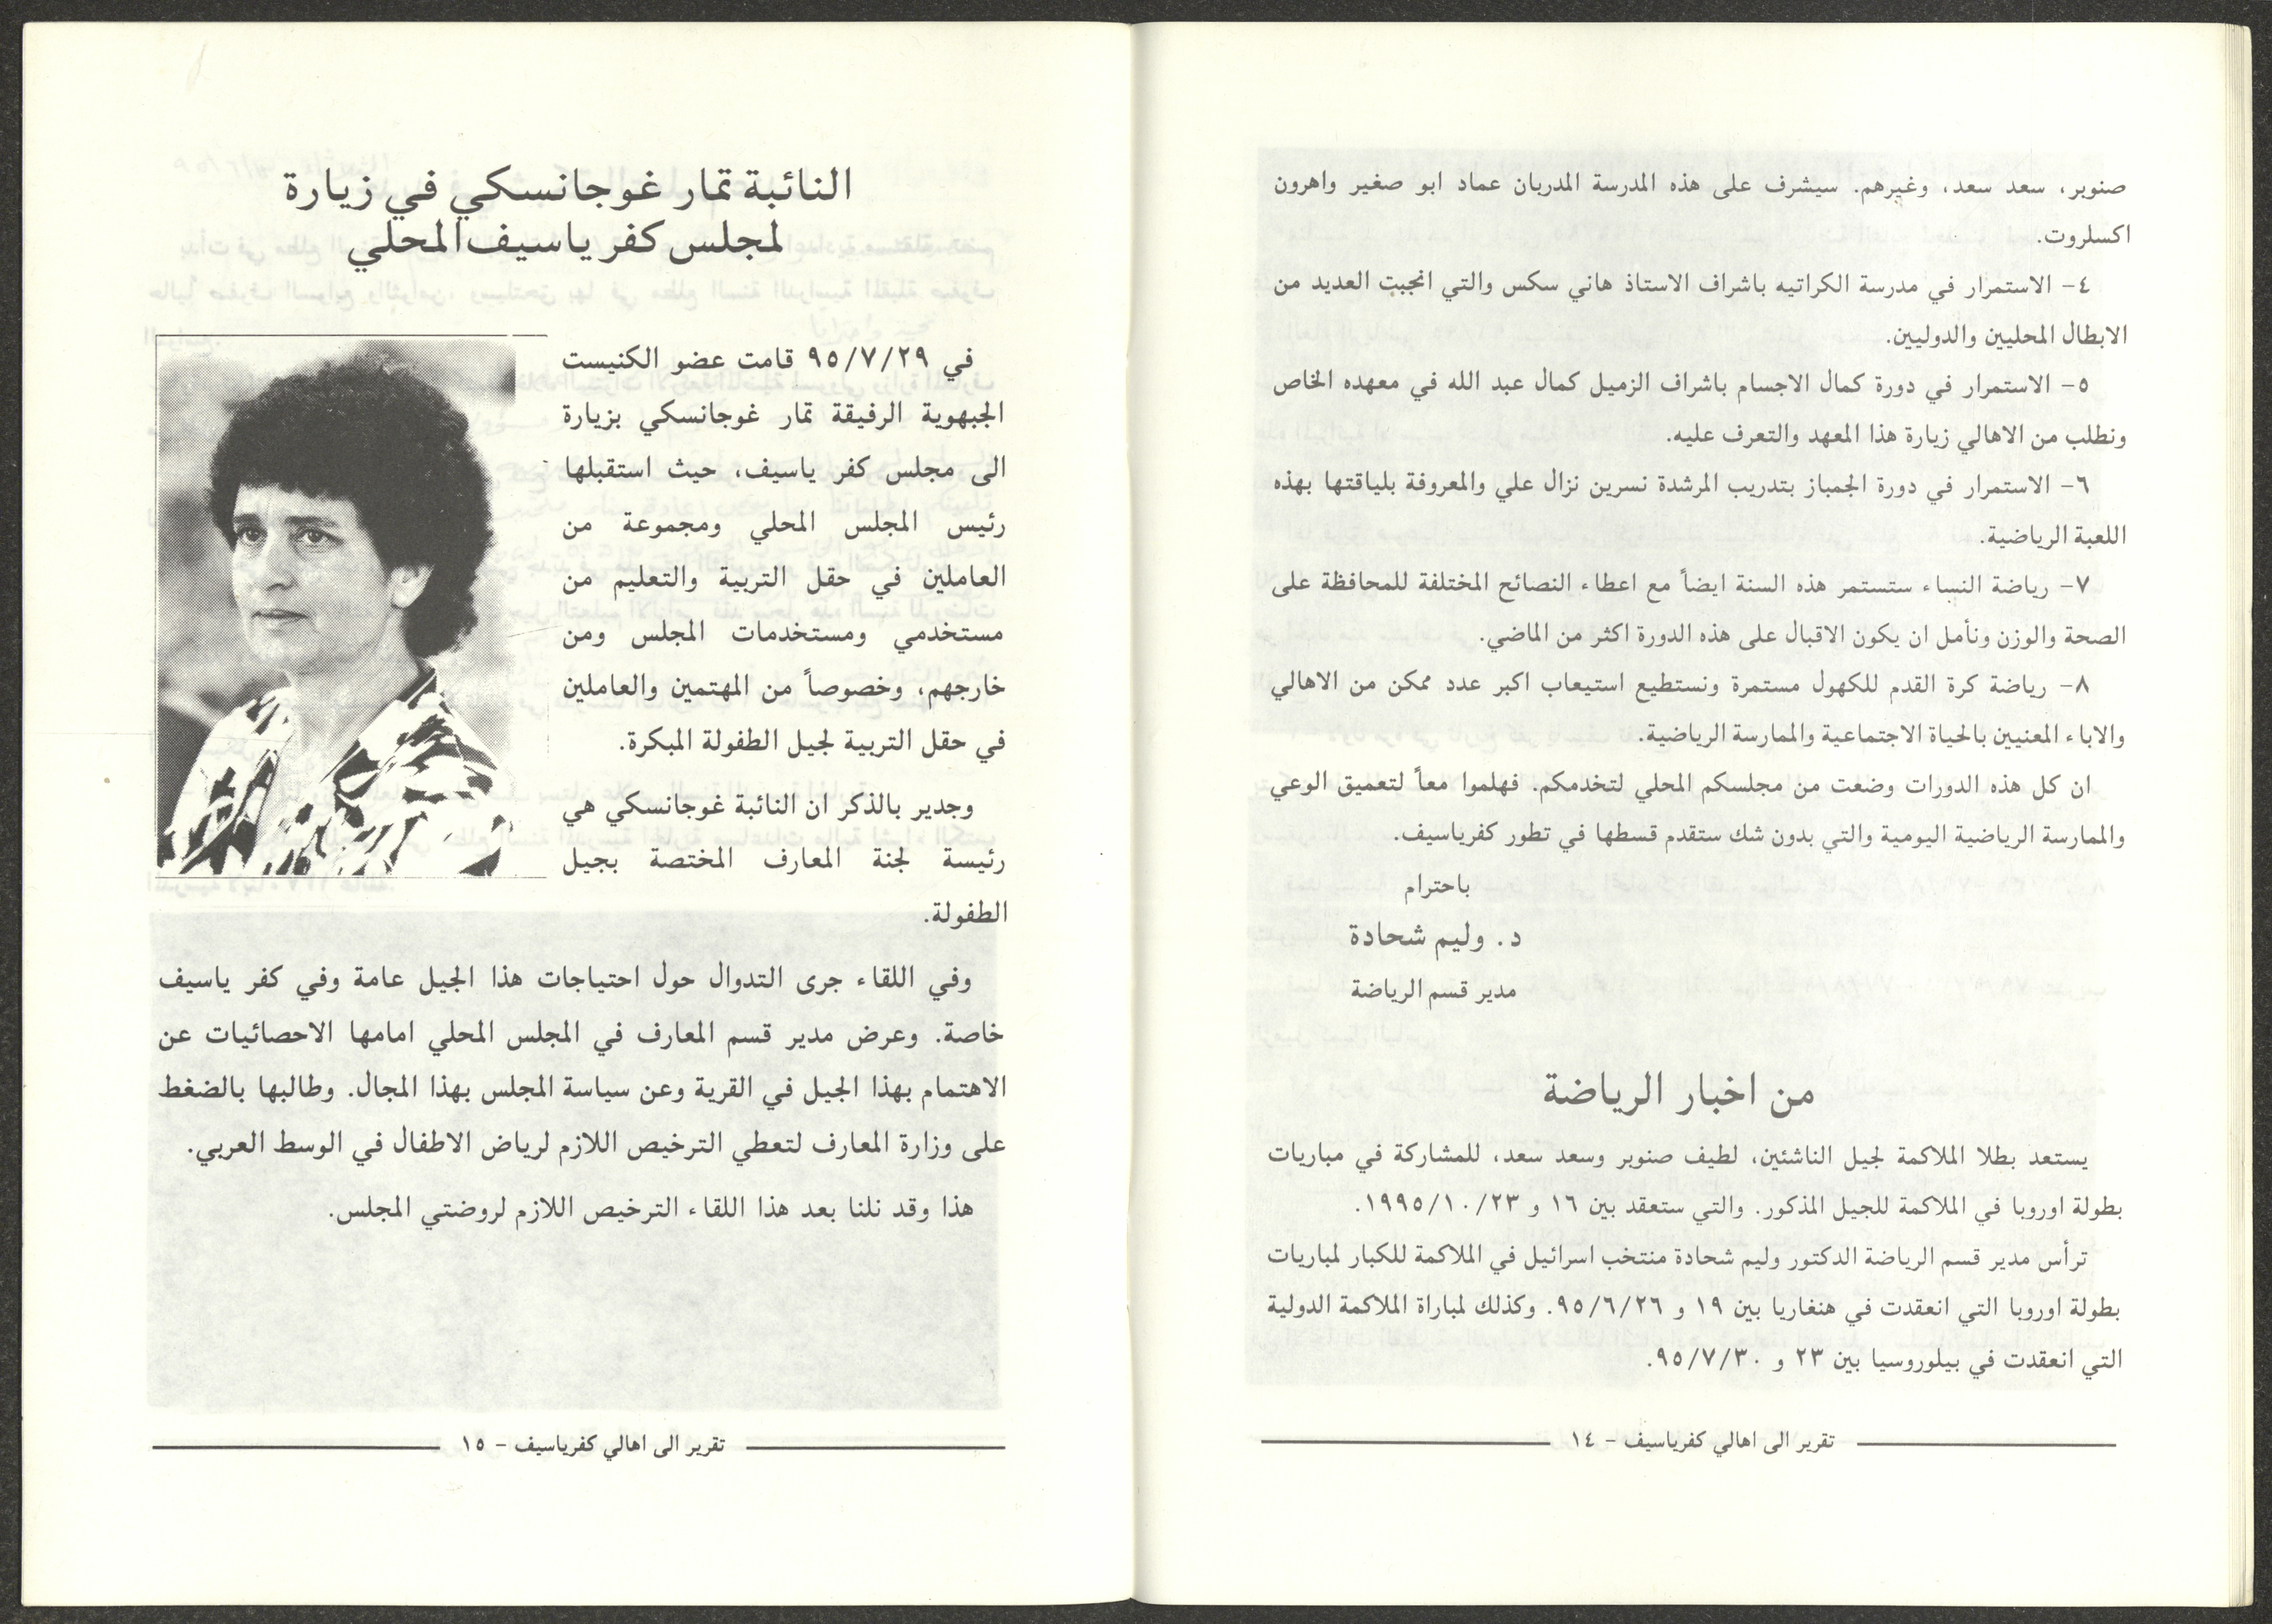 صنوبر، سعد سعد، وغيرهم. سيشرف على هذه المدرسة المدربان عماد ابو صغير واهرون
اكسلروت.
٤- الاستمرار في مدرسة الكراتيه باشراف الاستاذ هاني سكس والتي انجبت العديد من
الابطال المحليين والدوليين.
٥- الاستمرار في دورة كمال الاجسام باشراف الزميل كمال عبد الله في معهده الخاص
ونطلب من الاهالي زيارة هذا المعهد والتعرف عليه.
٦- الاستمرار في دورة الجمباز بتدريب المرشدة نسرين نزال علي والمعروفة بلياقتها بهذه
اللعبة الرياضية.
٧- رياضة النساء ستستمر هذه السنة ايضاً مع اعطاء النصائح المختلفة للمحافظة على
الصحة والوزن ونأمل ان يكون الاقبال على هذه الدورة اكثر من الماضي.
٨- رياضة كرة القدم للكهول مستمرة ونستطيع استيعاب اكبر عدد ممكن من الاهالي
والاباء المعنيين بالحياة الاجتماعية والممارسة الرياضية.
ان كل هذه الدورات وضعت من مجلسكم المحلي لتخدمكم. فهلموا معاً لتعميق الوعي
والممارسة الرياضية اليومية والتي بدون شك ستقدم قسطها في تطور كفرياسيف.
باحترام
د. وليم شحادة
مدير قسم الرياضة
من اخبار الرياضة
يستعد بطلا الملاكمة لجيل الناشئين، لطيف صنوبر وسعد سعد، للمشاركة في مباريات
بطولة اوروبا في الملاكمة للجيل المذكور. والتي ستعقد بين ١٦ و ١٩٩٥/١٠/٢٣.
ترأس مدير قسم الرياضة الدكتور وليم شحادة منتخب اسرائيل في الملاكمة للكبار لمباريات
بطولة اوروبا التي انعقدت في هنغاريا بين ١٩ و ٩٥/٦/٢٦. وكذلك لمباراة الملاكمة الدولية
التي انعقدت في بيلوروسيا بين ٢٣ و ٩٥/٧/٣٠.
تقرير الى اهالي كفرياسيف - ١٤
النائبة تمار غوجانسكي في زيارة
لمجلس كفر ياسيف المحلي
في ٩٥/٧/٢٩ قامت عضو الكنيست
الجبهوية الرفيقة تمار غوجانسكي بزيارة
الى مجلس كفر ياسيف، حيث استقبلها
رئيس المجلس المحلي ومجموعة من
العاملين في حقل التربية والتعليم من
مستخدمي ومستخدمات المجلس ومن
خارجهم، وخصوصاً من المهتمين والعاملين
في حقل التربية لجيل الطفولة المبكرة.
وجدير بالذكر ان النائبة غوجانسكي هي
رئيسة لجنة المعارف المختصة بجيل
الطفولة.
وفي اللقاء جرى التدوال حول احتياجات هذا الجيل عامة وفي كفر ياسيف
خاصة. وعرض مدير قسم المعارف في المجلس المحلي امامها الاحصائيات عن
الاهتمام بهذا الجيل في القرية وعن سياسة المجلس بهذا المجال. وطالبها بالضغط
على وزارة المعارف لتعطي الترخيص اللازم لرياض الاطفال في الوسط العربي.
هذا وقد نلنا بعد هذا اللقاء الترخيص اللازم لروضتي المجلس.
تقرير الى اهالي كفرياسيف - ١٥